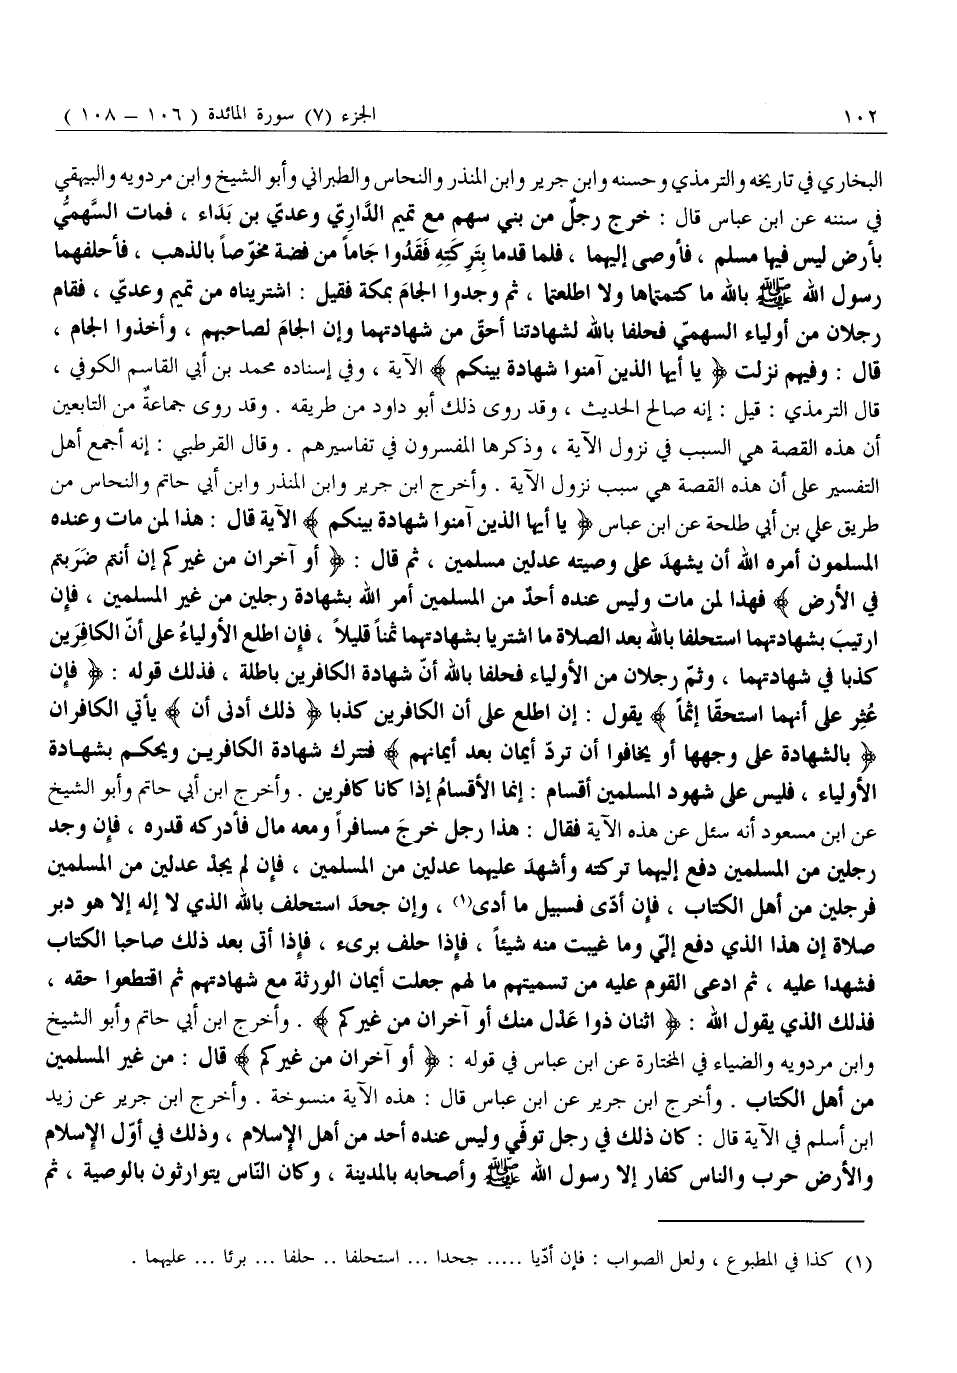 ١٠٢ الجزء (٧) سورة المائدة ( ١٠٦ – ١٠٨ )
البخاري في تاريخه والترمذي وحسنه وابن جرير وابن المنذر والنحاس والطبراني وأبو الشيخ وابن مردويه والبيهقي
في سننه عن ابن عباس قال : خرج رجلٌ من بني سهم مع تميم الدَّاريّ وعديّ بن بَدَاء ، فمات السَّهميُّ
بأرض ليس فيها مسلم ، فأوصى إليهما ، فلما قدما بِتَرِكَتِهِ فَقَدُوا جَاماً من فضة مخوّصاً بالذهب ، فأحلفهما
رسول الله ﷺ بالله ما كتمتماها ولا اطلعتما ، ثم وجدوا الجامَ بمكة فقيل : اشتريناه من تميم وعديّ ، فقام
رجلان من أولياء السهميّ فحلفا بالله لشهادتنا أحقّ من شهادتهما وإن الجامَ لصاحبهم ، وأخذوا الجام ،
قال : وفيهم نزلت ﴿ يا أيها الذين آمنوا شهادة بينكم ﴾ الآية ، وفي إسناده محمد بن أبي القاسم الكوفي ،
قال الترمذي : قيل : إنه صالح الحديث ، وقد روى ذلك أبو داود من طريقه . وقد روى جماعةٌ من التابعين
أن هذه القصة هي السبب في نزول الآية ، وذكرها المفسرون في تفاسيرهم . وقال القرطبي : إنه أجمع أهل
التفسير على أن هذه القصة هي سبب نزول الآية . وأخرج ابن جرير وابن المنذر وابن أبي حاتم والنحاس من
طريق علي بن أبي طلحة عن ابن عباس ﴿ يا أيها الذين آمنوا شهادة بينكم ﴾ الآية قال : هذا لمن مات وعنده
المسلمون أمره الله أن يشهدَ على وصيته عدلين مسلمين ، ثم قال : ﴿ أو آخران من غيركم إن أنتم ضَرَبتم
في الأرض ﴾ فهذا لمن مات وليس عنده أحدٌ من المسلمين أمر الله بشهادة رجلين من غير المسلمين ، فإن
ارتيبَ بشهادتهما استحلفا بالله بعد الصلاة ما اشتريا بشهادتهما ثمناً قليلاً ، فإن اطلع الأولياءُ على أنّ الكافِرَين
كذبا في شهادتهما ، وثمّ رجلان من الأولياء فحلفا بالله أنّ شهادة الكافرين باطلة ، فذلك قوله : ﴿ فإن
عُثِر على أنهما استحقّا إثماً ﴾ يقول : إن اطلع على أن الكافرين كذبا ﴿ ذلك أدنى أن ﴾ يأتي الكافران
﴿ بالشهادة على وجهها أو يخافوا أن تردّ أيمان بعد أيمانهم ﴾ فتترك شهادة الكافرين ويحكم بشهادة
الأولياء ، فليس على شهود المسلمين أقسام : إنما الأقسامُ إذا كانا كافرين . وأخرج ابن أبي حاتم وأبو الشيخ
عن ابن مسعود أنه سئل عن هذه الآية فقال : هذا رجل خرجَ مسافراً ومعه مال فأدركه قدره ، فإن وجد
رجلين من المسلمين دفع إليهما تركته وأشهدَ عليهما عدلين من المسلمين ، فإن لم يجدْ عدلين من المسلمين
فرجلين من أهل الكتاب ، فإن أدّى فسبيل ما أدى(١) ، وإن جحدَ استحلف بالله الذي لا إله إلا هو دبر
صلاة إن هذا الذي دفع إليّ وما غيبت منه شيئاً ، فإذا حلف برىء ، فإذا أتى بعد ذلك صاحبا الكتاب
فشهدا عليه ، ثم ادعى القوم عليه من تسميتهم ما لهم جعلت أيمان الورثة مع شهادتهم ثم اقتطعوا حقه ،
فذلك الذي يقول الله : ﴿ اثنان ذوا عَدْل منك أو آخران من غيركم ﴾ . وأخرج ابن أبي حاتم وأبو الشيخ
وابن مردويه والضياء في المختارة عن ابن عباس في قوله : ﴿ أو آخران من غيركم ﴾ قال : من غير المسلمين
من أهل الكتاب . وأخرج ابن جرير عن ابن عباس قال : هذه الآية منسوخة . وأخرج ابن جرير عن زيد
ابن أسلم في الآية قال : كان ذلك في رجل توفّي وليس عنده أحد من أهل الإسلام ، وذلك في أوّل الإسلام
والأرض حرب والناس كفار إلا رسول الله ﷺ وأصحابه بالمدينة ، وكان النّاس يتوارثون بالوصية ، ثم
(١) كذا في المطبوع ، ولعل الصواب : فإن أدّيا ..... جحدا ... استحلفا .. حلفا ... برئا ... عليهما .